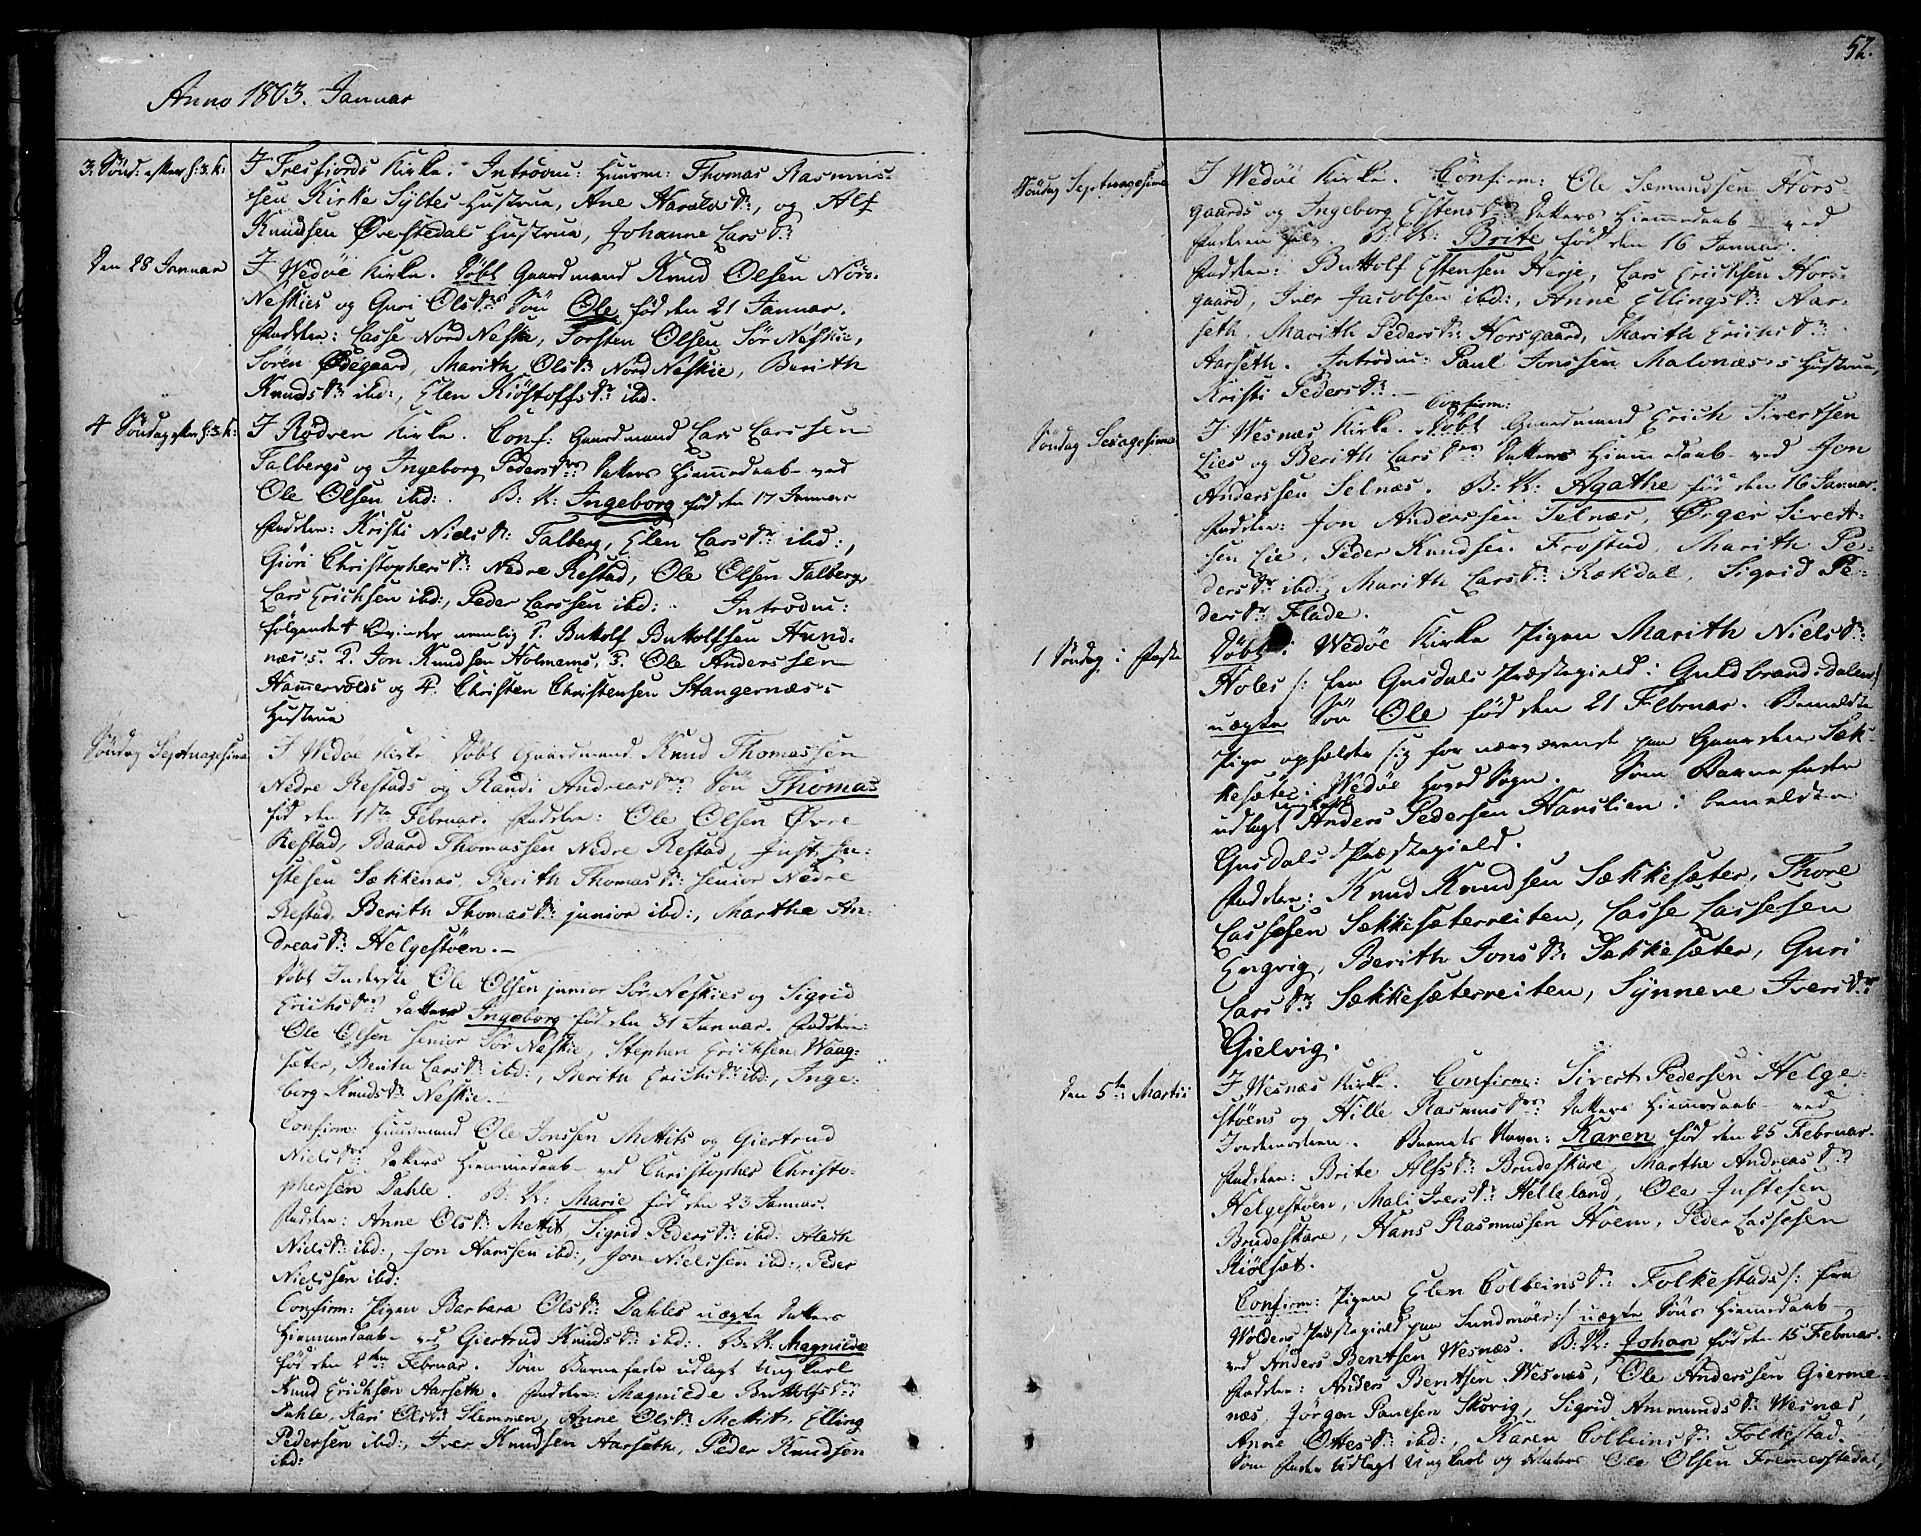 Anno 1803. Januar
3. Sønd: efter H: 3. K:
I Tresfiords Kirke. Introdu: Huusm: Thomas Rasmus-
sen Kirke Syltes Hustrue, Ane Haralds Dr:, og Alf
Knudsen Ørestedals Hustrue, Johanne Lars Dr:
Den 28 Januar
I Wedøe Kirke. Døbt Gaardmand Knud Olsen Nor-
Neskies og Guri Ols Drs: Søn Ole, fød den 21 Januar.
Faddere: Lasse Nord Neskie, Torsten Olsen Sør Neskie,
Sören Ødegaard, Marith Ols Dr: Nord Neskie, Berith
Knuds Dr: ibd:, Elen Kiöstoffs Dr: ibd.
4 Søndag efter H: 3. K:
I Rødven Kirke. Conf: Gaardmand Lars Larssen
Talbergs og Ingeborg Peders Drs: Datters Hiemmedaab ved
Ole Olsen ibd:. B: N: Ingeborg fød den 17 Januar
Faddere: Kristi Niels Dr: Talberg, Elen Lars Dr: ibd:,
Giøri Christophers Dr: Nedre Restad, Ole Olsen Talberg,
Lars Erichsen ibd:, Peder Larssen ibd: Introdu:
følgende 4 Qvinder nemlig 1. Buttolf Buttolfsen Hund-
næs's. 2. Jon Knudsen Holmems, 3. Ole Anderssen
Hammervolds og 4. Christen Christensen Stangernæs's
Hustrue
Søndag Septuagesima
I Wedøe Kirke Døbt Gaardmand Knud Thomassen
Nedre Restads og Randi Andreas Drs: Søn Thomas
fød den 1ste Februar. Faddere: Ole Olsen Øvre
Restad, Baard Thomassen Nedre Restad, Just Ju-
stesen Sækkenæs, Berith Thomas Dr: senior Nedre
Restad, Berith Thomas Dr: junior ibd:, Martha An-
dreas Dr: Helgestøen.-
Døbt Inderste Ole Olsen junior Sør Neskies og Sigrid
Erichs Drs: Datter Ingeborg fød den 31 Januar. Faddere:
Ole Olsen senior Sør Neskie, Stephen Erichsen Waag-
sæter, Berith Lars Dr: ibd:, Berith Erichs Dr: ibd:, Inge-
borg Knuds Dr: Neskie.
Confirm: Huusmand Ole Jonssen Mettits og Giertrud
Niels Drs: Datters Hiemmedaab ved Christopher Christo-
phersen Dahle. B: N: Marie fød den 23 Januar.
Faddere: Anne Ols Dr: Mettit Sigrid Peders Dr: ibd:
Niels Dr: ibd:, Jon Hanssen ibd:, Jon Nielssen ibd:, Peder
Nielssen ibd:
Confirm: Pigen Barbara Ols Dr: Dahles uægte Datters
Hiemmedaab ved Giertrud Knuds Dr: ibd: B: N: Magnilde
fød den 2den Februar. Som Barnefader udlagt Ungkarl
Knud Erichsen Aarseth. Faddere: Magnilde Buttolfs Dr:
Dahle, Kari Ols Dr: Slemmen, Anne Ols Dr: Mettit, Elling
Pedersen ibd:, Iver Knudsen Aarseth, Peder Knudsen
ibd:
52.
Søndag Septuagesima
I Wedøe Kirke. Confirm: Ole Sæmundsen Hors-
gaards og Ingeborg Estens Drs: Datters Hiemmedaab ved
Faderen selv. B: N: Brite fød den 16 Januar.
Faddere: Buttolf Estensen Herje, Lars Erichsen Hors-
gaard, Iver Jacobsen ibd:, Anne Ellings Dr: Aar-
seth, Marith Peders Dr: Horsgaard, Marith Erichs Dr:
Aarseth. Introdu: Paul Jonssen Malonæs's Hustrue,
Kristi Peders Dr:
Søndag Sexagesima
Confirm:
I Wesnæs Kirke. Døbt Gaardmand Erich Sivertsen
Lies og Berith Lars Drs: Datters Hiemmedaab ved Jon
Anderssen Selnæs. B: N: Agathe fød den 16 Januar.
Faddere: Jon Anderssen Selnæs, Ørger Sivert-
sen Lie, Peder Knudsen Frostad, Marith Pe-
ders Dr: ibd:, Marith Lars Dr: Rækdal, Sigrid Pe-
ders Dr: Flade.
1 Søndag i Faste
Døbt i Wedøe Kirke Pigen Marith Niels Dr:
Holes /: fra Gusdals Præstegield i Guldbrandsdalen :/
uægte Søn Ole fød den 21 Februar. Bemeldte
Pige opholder sig for nærværende paa Gaarden Sæk-
kesæter i Wedøe Hoved Sogn. Som Barnefader
ungkarl
udlagt Anders Pedersen Hanslien i bemeldte
Gusdals Præstegield.
Faddere: Knud Knudsen Sækkesæter, Thore
Lassesen Sækkesæterreiten, Lasse Lassesen
Engvig, Berith Jons Dr: Sækkesæter, Guri
Lars Dr: Sækkesæterreiten, Synneve Ivers Dr:
Gielvig.
Den 5te Martii
I Wesnæs Kirke. Confirm: Sivert Pedersen Helge-
støens og Hille Rasmus Drs: Datters Hiemmedaab ved
Iordemoderen. Barnets Navn: Karen fød den 25 Februar.
Faddere: Brite Alfs Dr: Brudeskare, Martha Andreas Dr:
Helgestøen, Mali Ivers Dr: Helleland, Ole Justesen
Brudeskare, Hans Rasmussen Hoem, Peder Lassesen
Kiölsæt.
Confirm: Pigen Elen Colbeins Dr: Folkestads /: fra
Woldens Præstegield paa Sundmøer :/ uægte Søns Hiemmedaab
ved Anders Bentsen Wesnæs. B: N: Johan fød den 15 Februar.
Faddere: Anders Bentsen Wesnæs, Ole Anderssen Gierme-
næs, Jörgen Pansen Skorig, Sigrid Ammunds Dr: Wesnæs,
Anne Ottes Dr: ibd:, Karen Colbeins Dr: Folkestad.
Som Fader udlagt Ungkarl og Ole Olsen Fremerstedal,